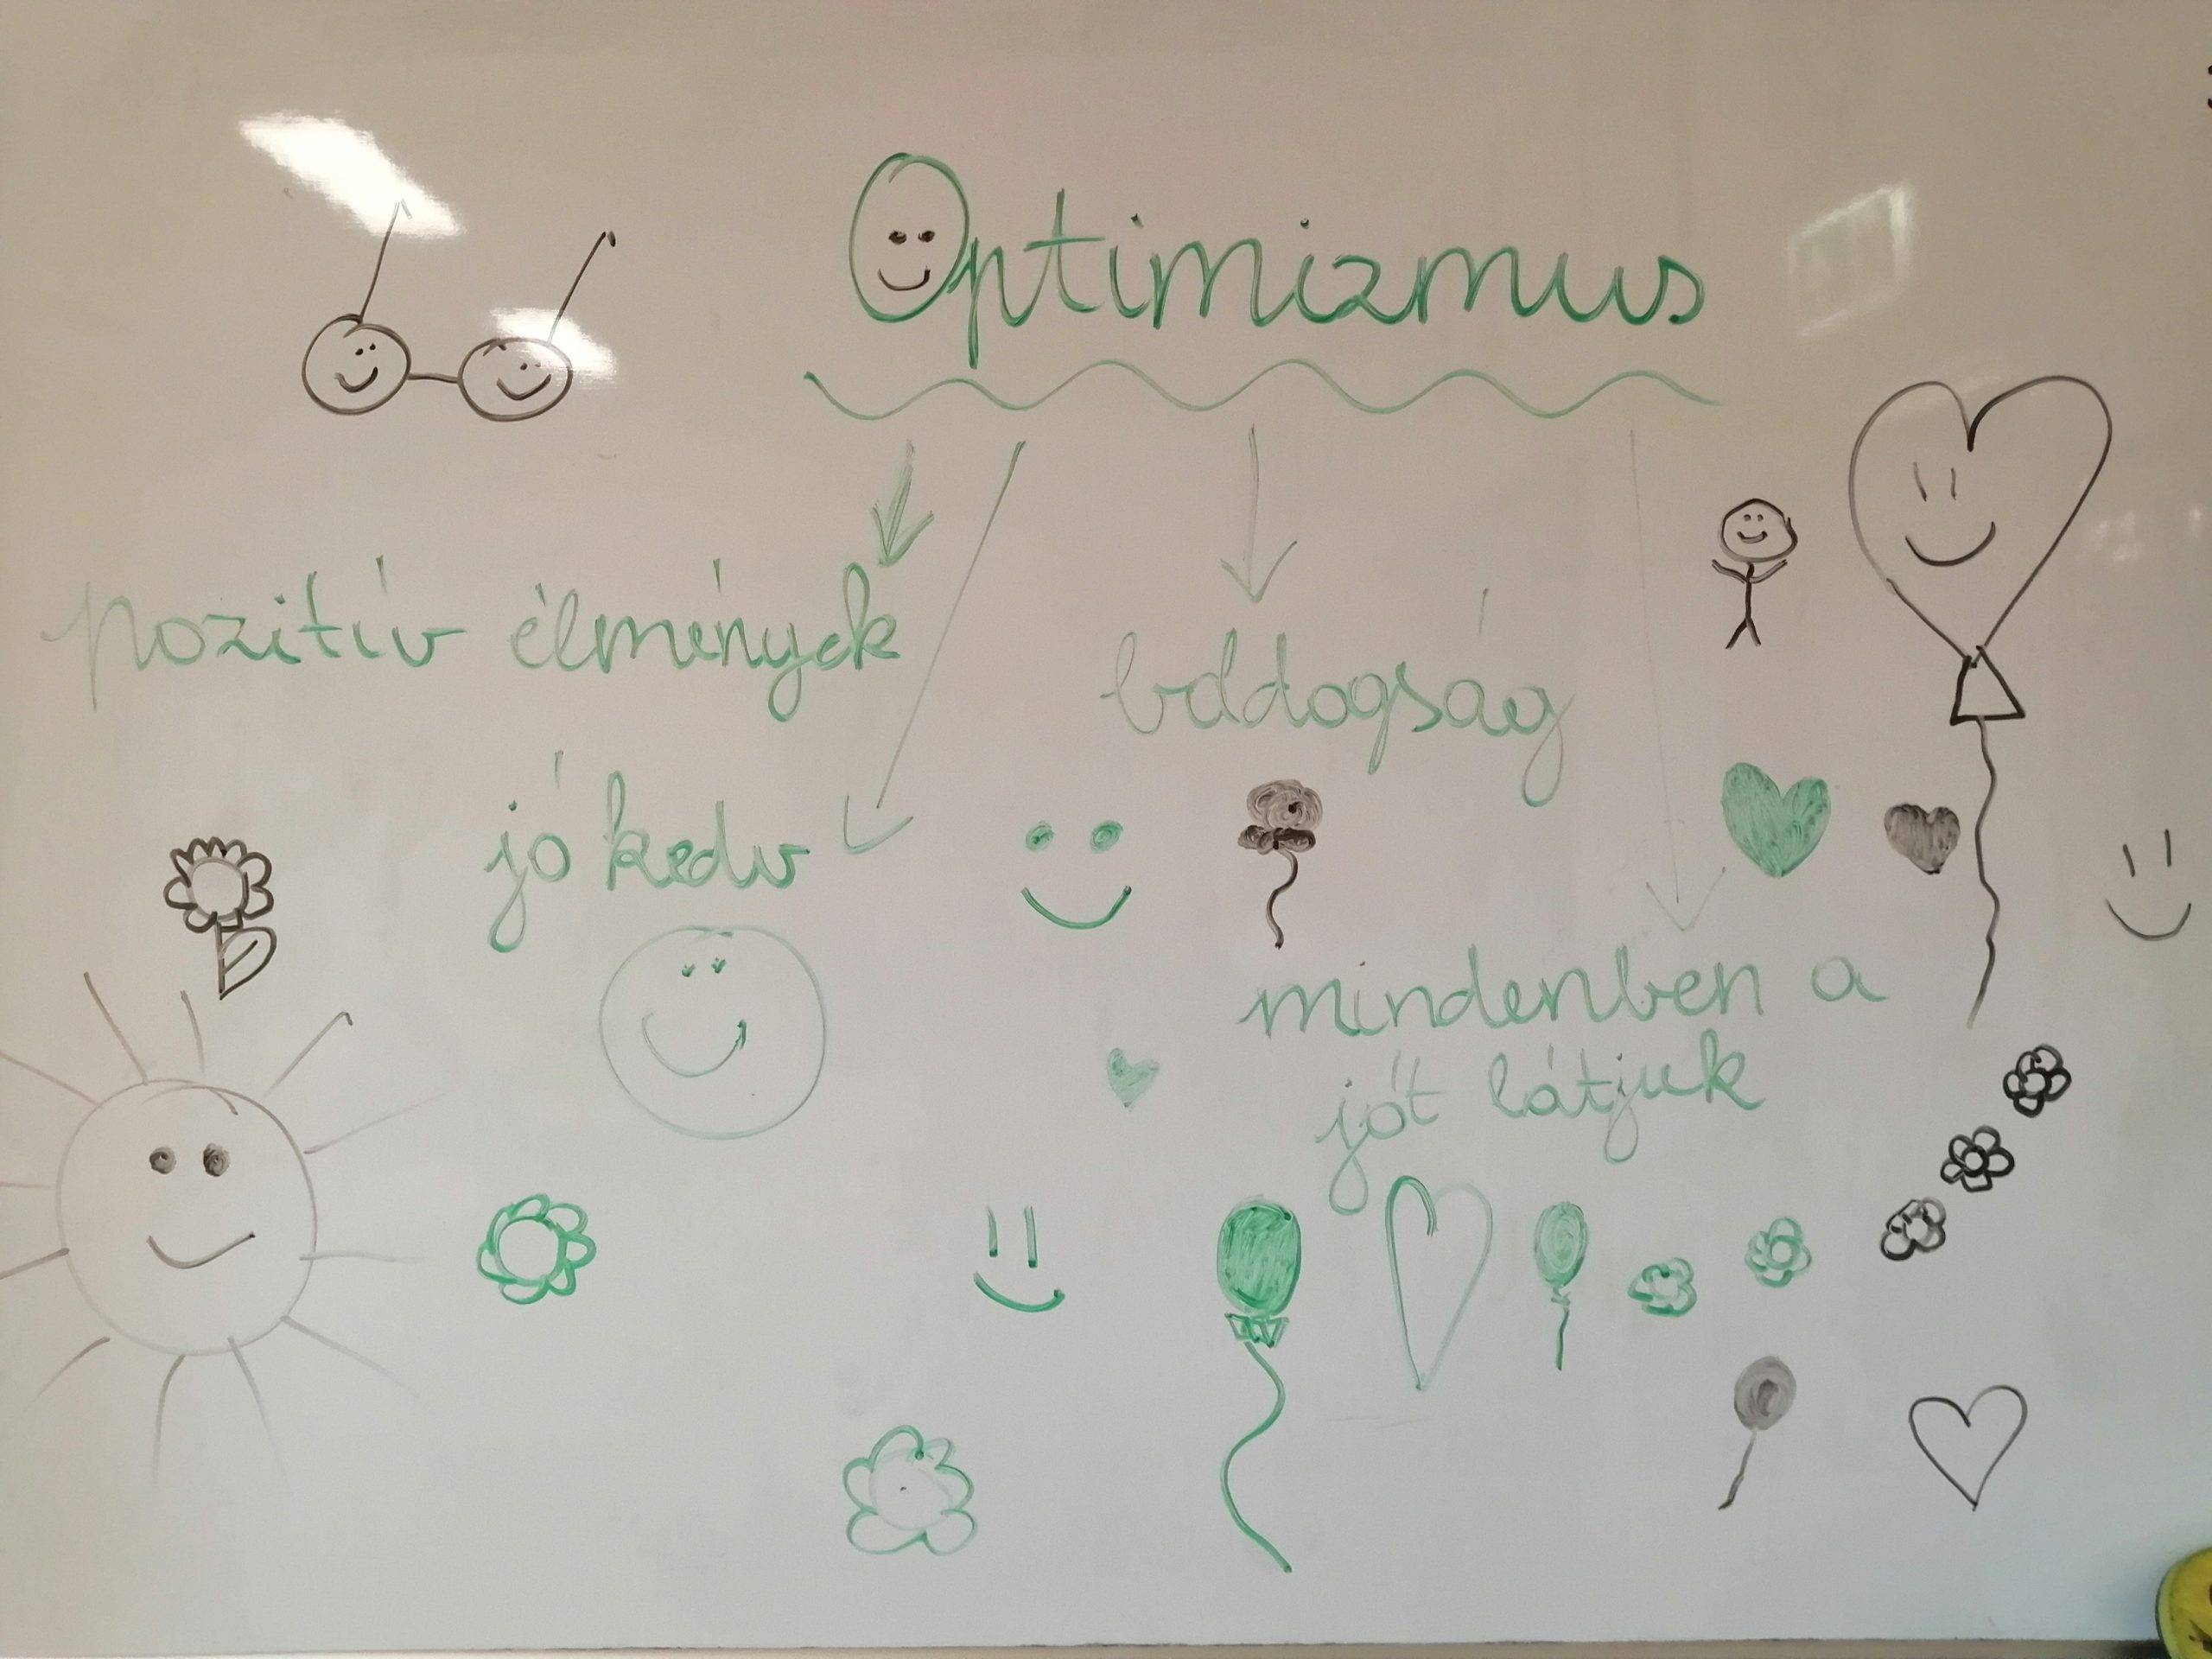 Optimizmus
pozitív élmények
boldogság
jó kedv
mindenben a
jót látjuk